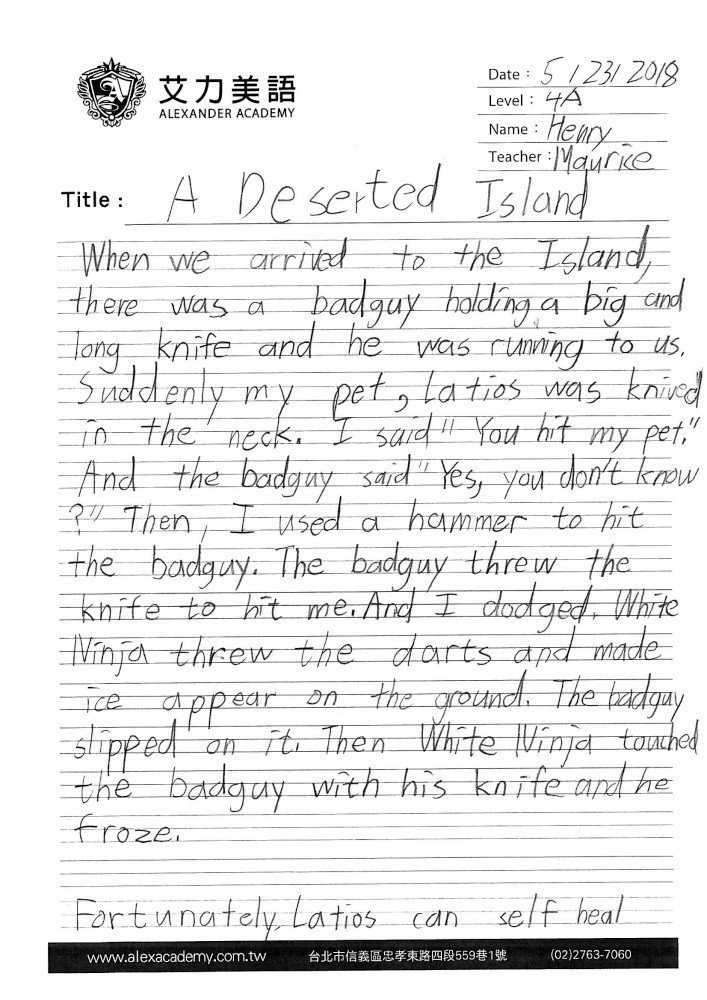 艾力美語
ALEXANDER ACADEMY
Date : 5/23/2018
Level : 4A
Name : Henry
Teacher : Maurice
Title : A Deserted Island
When we arrived to the Island,
there was a badguy holding a big and
long knife and he was running to us.
Suddenly my pet, Latios was knived
in the neck. I said " You hit my pet."
And the badguy said " Yes, you don't know
?" Then, I used a hammer to hit
the badguy. The badguy threw the
knife to hit me. And I dodged. White
Ninja threw the darts and made
ice appear on the ground. The badguy
slipped on it. Then White Ninja touched
the badguy with his knife and he
froze.
Fortunately, Latios can self heal
www.alexacademy.com.tw 台北市信義區忠孝東路四段559巷1號 (02)2763-7060